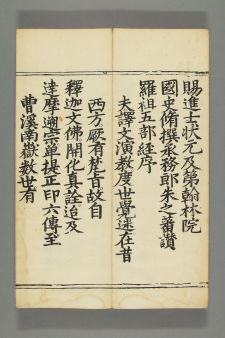 賜進士狀元及第翰林院
國史脩撰承務郎朱之蕃讃
羅祖五部經序
夫譯文演教度世覺迷在昔
西方厥有梵音故自
釋迦文佛開化真詮迨及
達摩邇宗單提正印六傳至
曹溪南嶽數世有